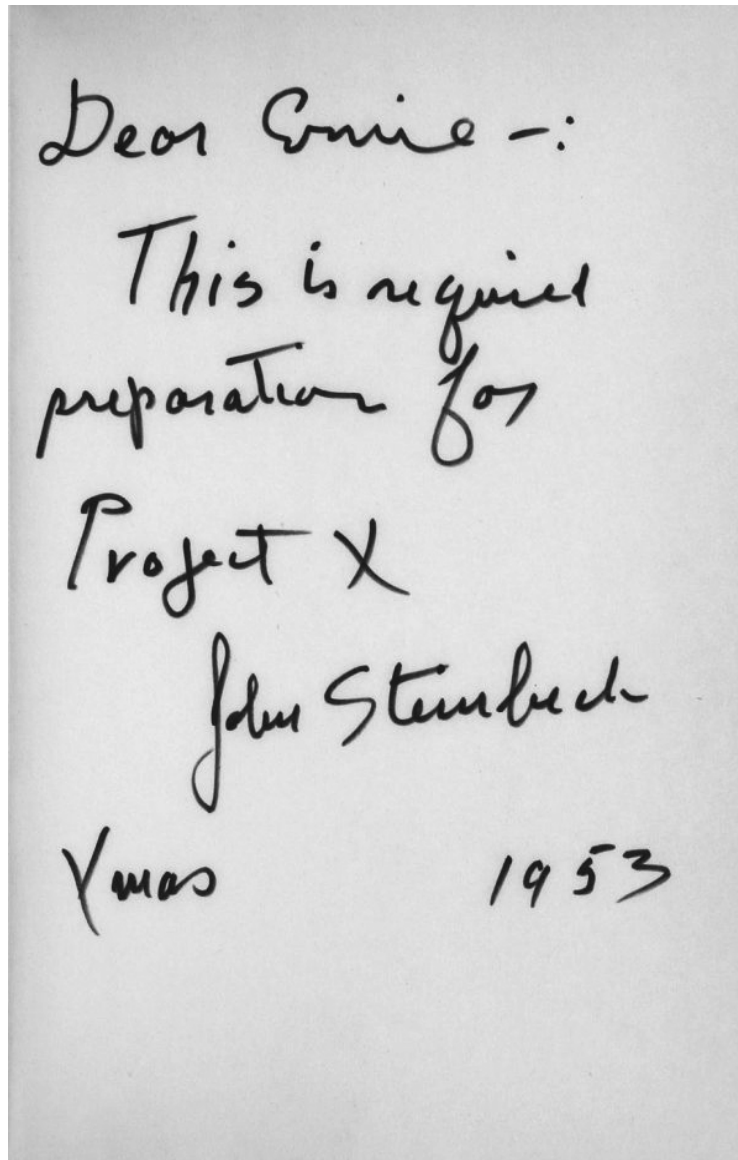 Dear Ernie -:
This is required
preparation for
Project X
John Steinbeck
Xmas 1953